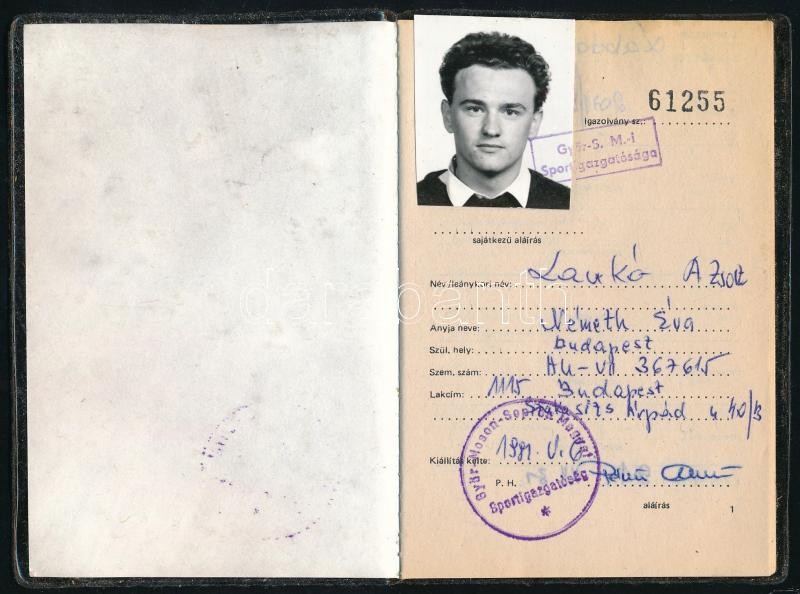 61255
Igazolvány sz.:
Győr-S. M.-i
Sportigazgatósága
sajátkezű aláírás
Név /leánykori név: Laukó Zsolt
darabanth
Anyja neve: Németh Éva
Szül. hely: Budapest
Szem. szám: AU-VI 367615
Lakcím: 1115 Budapest
Szakasits Árpád u. 40/B
Kiállítás kelte: 1991. V. 6.
P. H.
aláírás
Győr-Moson-Sopron Megyei
Sportigazgatóság
1